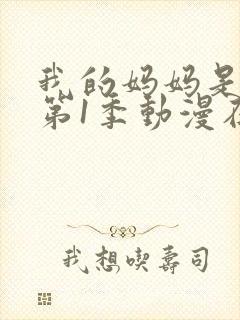 我的妈妈是
第1季動漫在
我想喫壽司